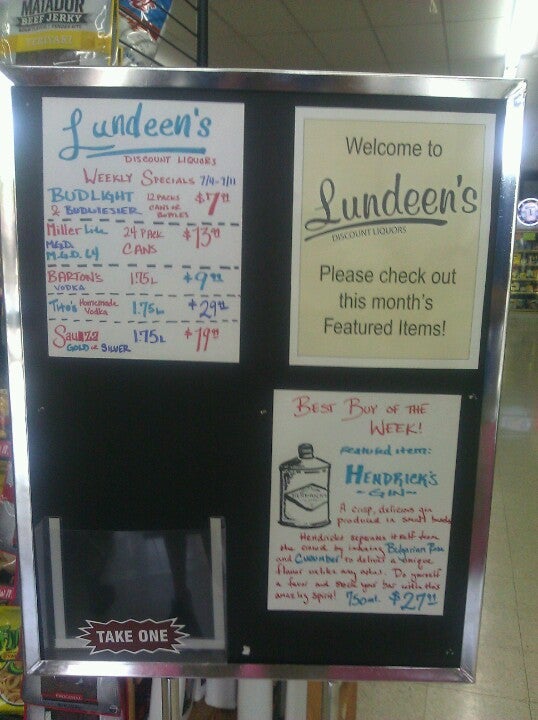 MATADOR
BEEF JERKY
TERIYAKI
Lundeen's
DISCOUNT LIQUORS
WEEKLY SPECIALS 7/4-7/11
BUDLIGHT 12 PACKS $7.99
& BUDWIESER CANS OR BOTTLES
Miller Lite 24 PACK $13.99
M.G.D. CANS
M.G.D. 64
BARTON'S 1.75L $9.99
VODKA
Tito's Homemade Vodka 1.75L $29.99
Sauza 1.75L $19.99
GOLD or SILVER
Welcome to
Lundeen's
DISCOUNT LIQUORS
Please check out
this month's
Featured Items!
BEST BUY OF THE
WEEK!
Featured item:
HENDRICK'S
- GIN -
A crisp, delicious gin
produced in small
Hendricks seperates itself from
the crowd by infusing Bulgarian Rose
and Cucumber to deliver a unique
flavor unlike any other. Do yourself
a favor and stock your bar with this
amazing spirit! 750ml. $27.99
TAKE ONE